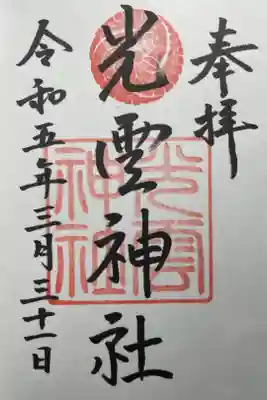 奉拝
光雲神社
令和五年三月三十一日
光雲
神社